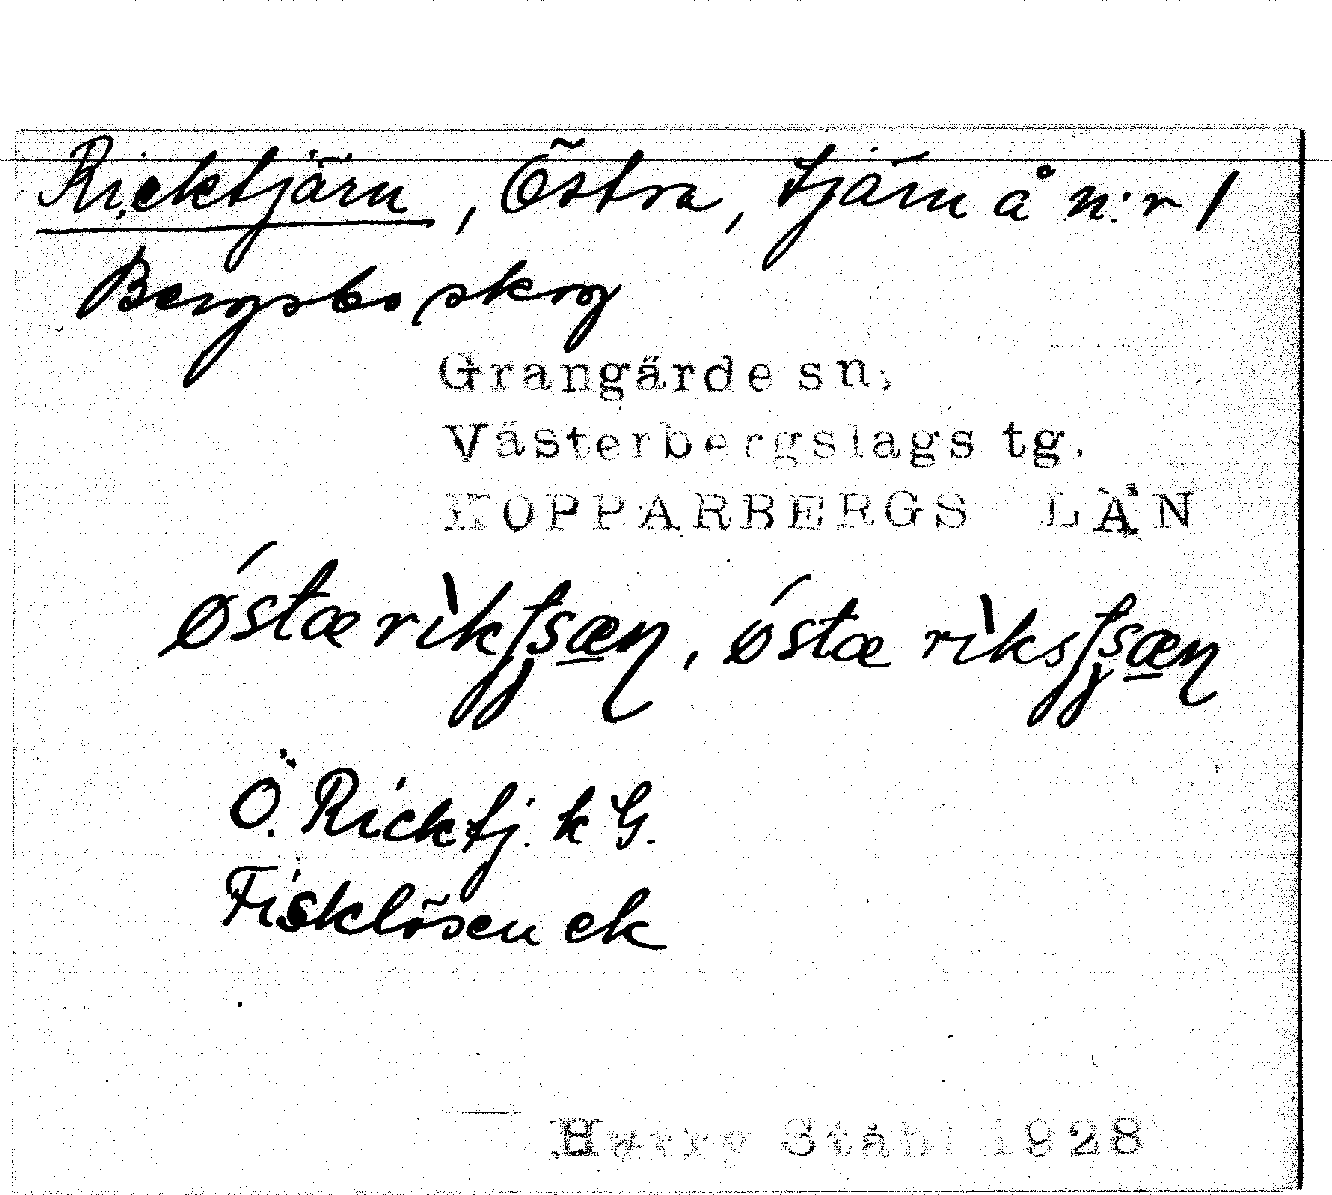 Ricktjärn, Östra, tjärn å n:r 1
Bergsbo skog
Grangärde sn,
Västerbergslags tg.
KOPPARBERGS LÄN
Ö. Ricktj. k G.
Fisklösen ek
Harry Ståhl 1928